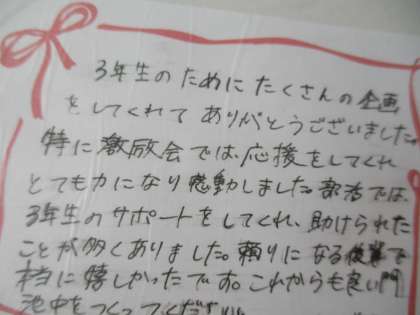 3年生のために たくさんの企画
をしてくれて ありがとうございました。
特に激励会では、応援をしてくれ
とても力になり感動しました。部活では、
3年生のサポートをしてくれ、助けられた
ことが多くありました。頼りになる後輩で
本当に嬉しかったです。これからも良い門
池中をつくってください